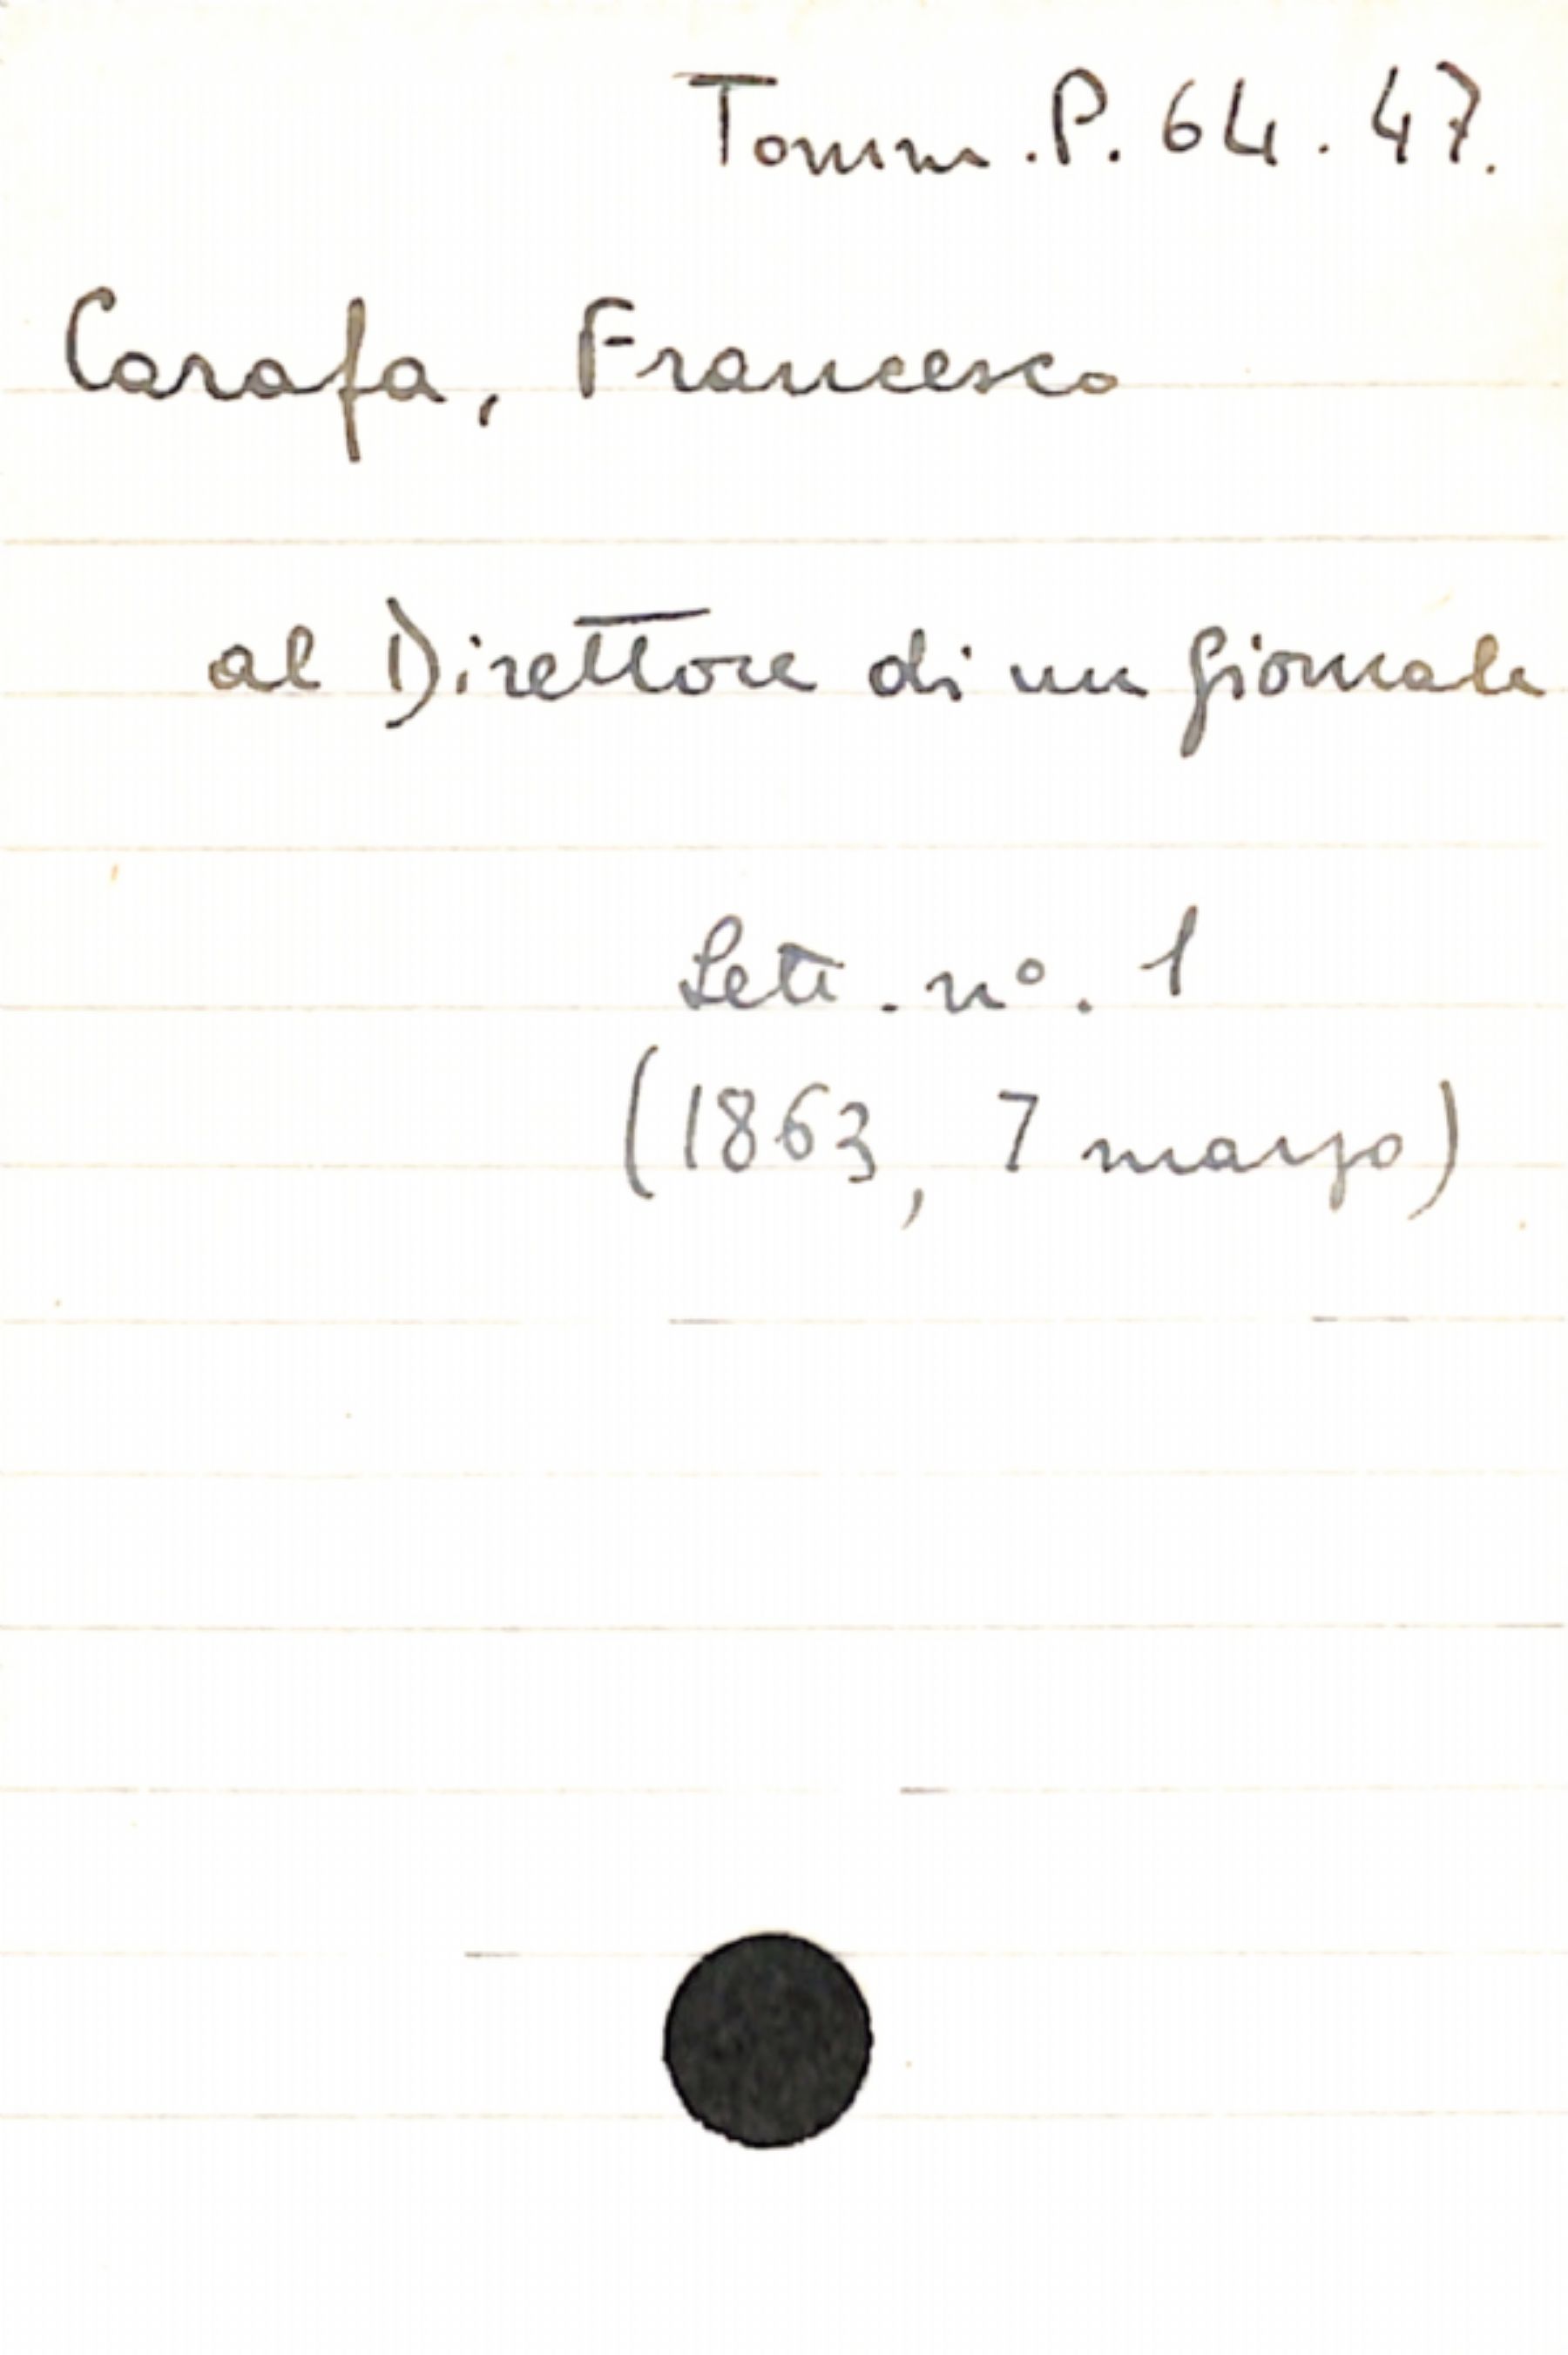 Tomm. P. 64. 47.
Carafa, Francesco
al Direttore di un giornale
Lett. n°. 1
(1863, 7 marzo)